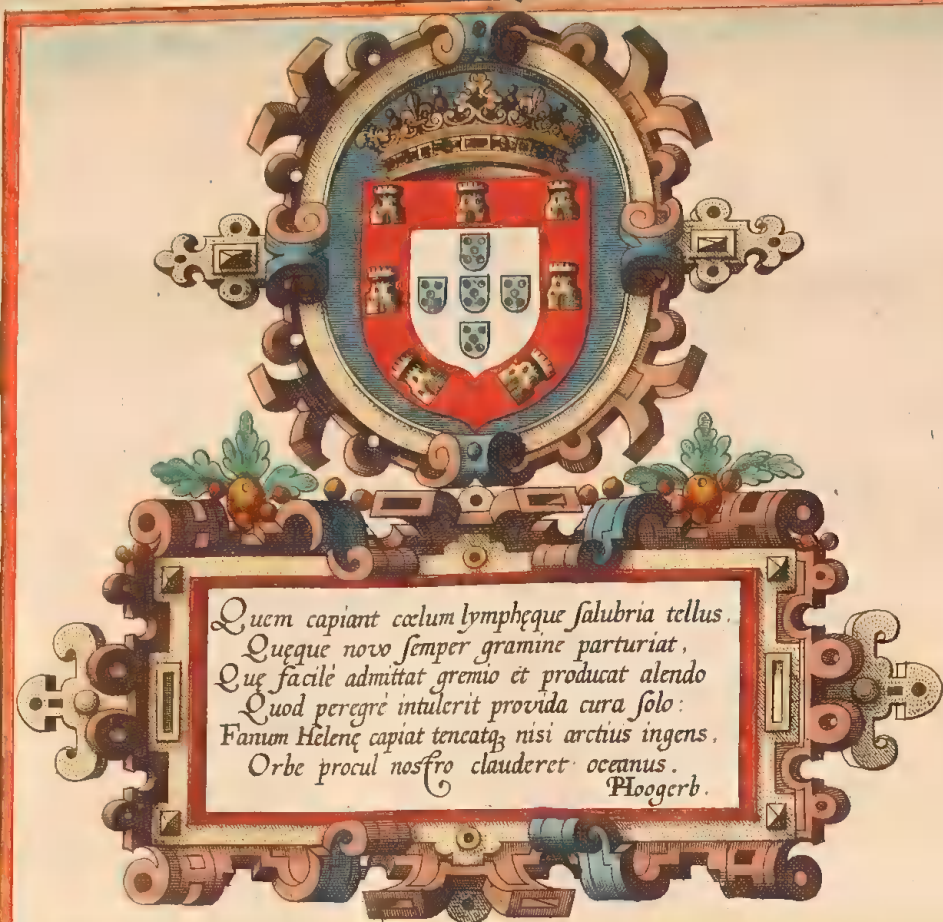 Quem capiant cœlum lymphęque salubria tellus.
Quęque novo semper gramine parturiat,
Quę facilè admittat gremio et producat alendo
Quod peregrè intulerit provida cura solo:
Fanum Helenę capiat teneatqꝫ nisi arctius ingens,
Orbe procul nostro clauderet oceanus.
PHoogerb.